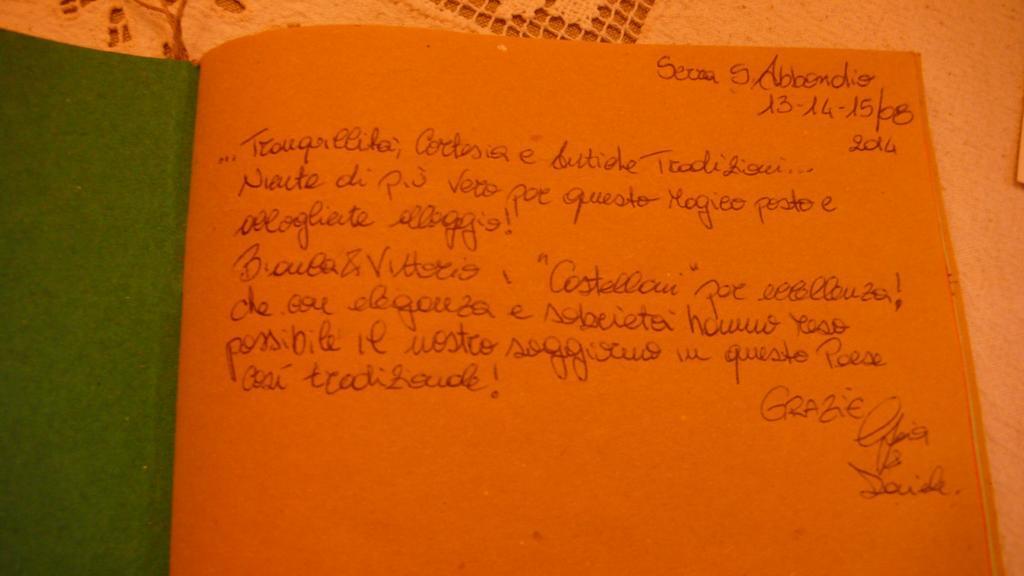 Serra S. Abbondio
13-14-15/08
2014
... Tranquillità, Cortesia e Antiche Tradizioni...
Niente di più vero per questo Magico posto e
accogliente alloggio!
Bianca & Vittorio, i "Castellani" per eccellenza!
che con eleganza e sobrietà hanno reso
possibile il nostro soggiorno in questo Paese
così tradizionale!
GRAZIE
Davide.